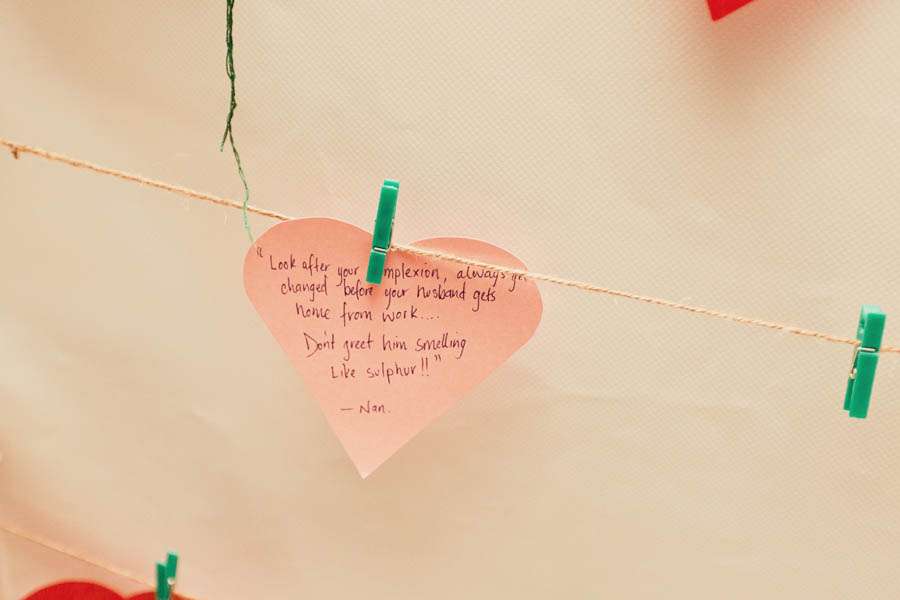 "Look after your mplexion, always ge
changed before your husband gets
home from work....
Don't greet him smelling
Like sulphur!!"
— Nan.